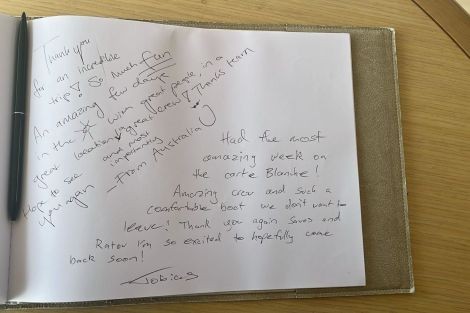 Thank you
for an incredible
trip! So much fun
An amazing few days
in the ☀ with great people, in a
great location, & great crew! Thanks team
and most importantly
Hope to see
you again
- From Australia
Had the most
amazing week on
the carte Blanche!
Amazing crew and such a
comfortable boat we don't want to
leave! Thank you again and
I'm so excited to hopefully come
back soon!
Tobias